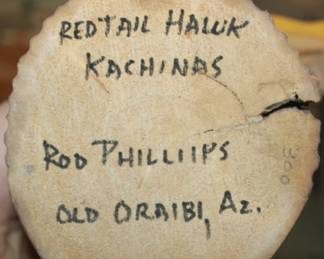 REDTAIL HALUK
KACHINAS
ROD PHILLIIPS
OLD ORAIBI, AZ.
300